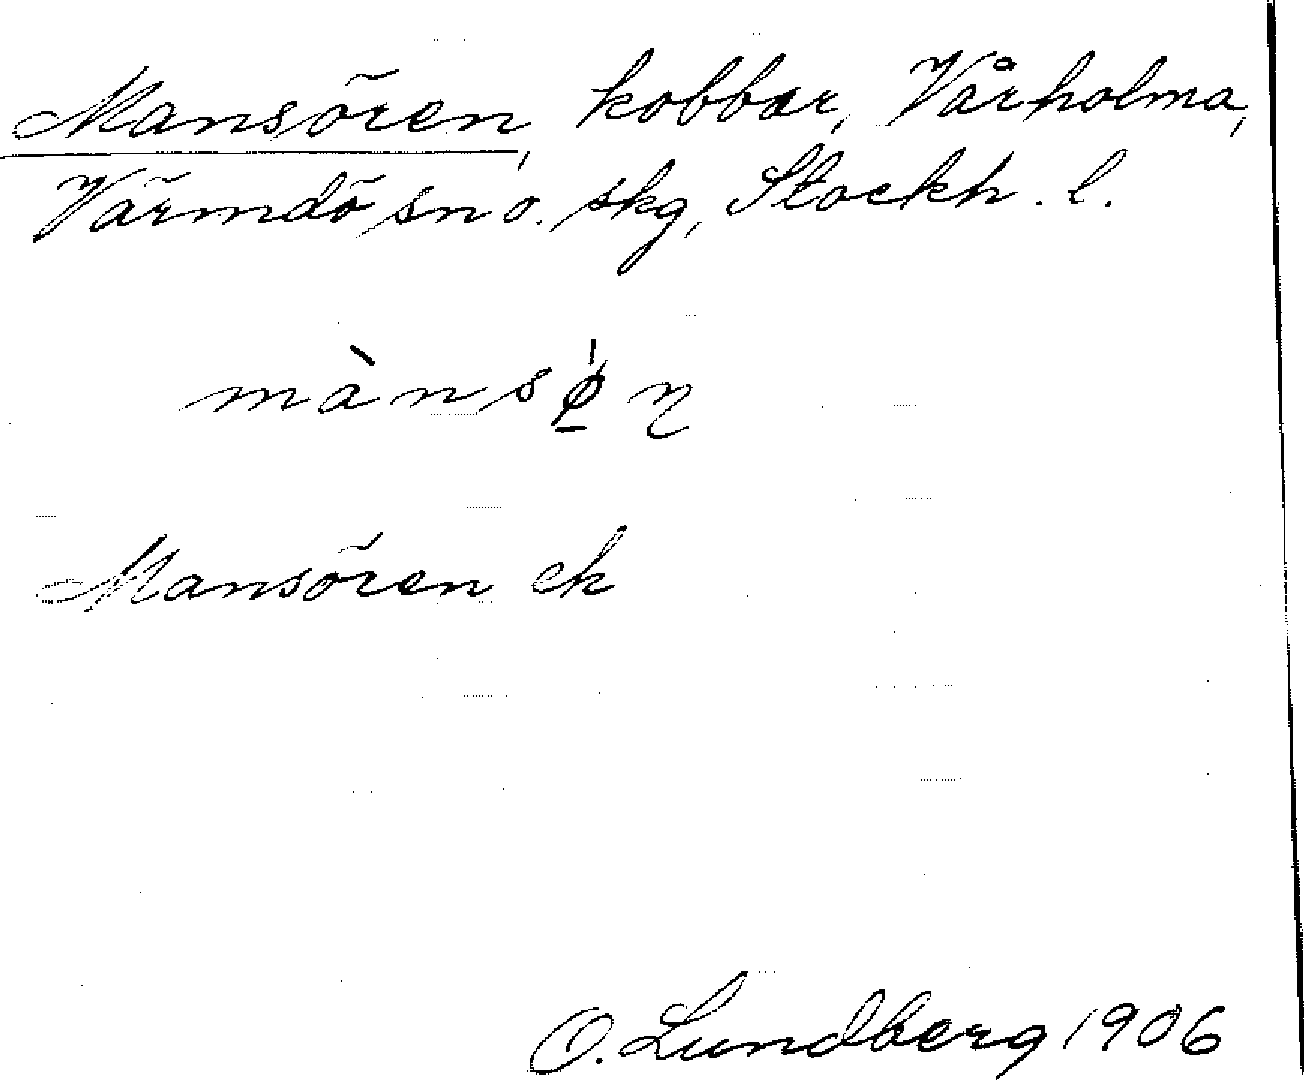 Mansören, kobbar, Vårholma,
Värmdö sn o. skg, Stockh. l.
mànsø̱̍ɳ
Mansören ek
O. Lundberg 1906